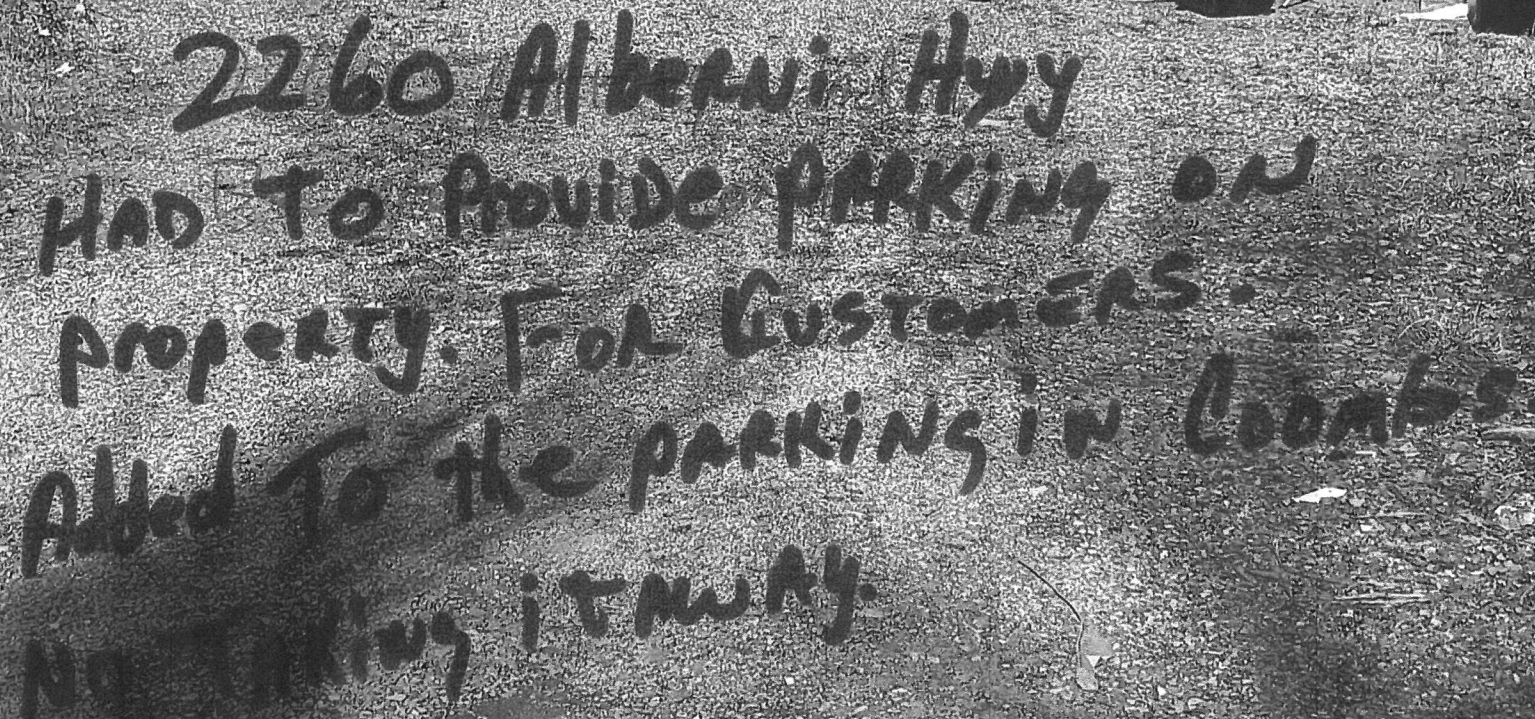 2260 Alberni Hwy
HAD TO ProviDe PARKiNg ON
property. FOR CUSTOMERS.
Added To the PARKiNg iN Coombs
No TAKiNg iT AWAY.